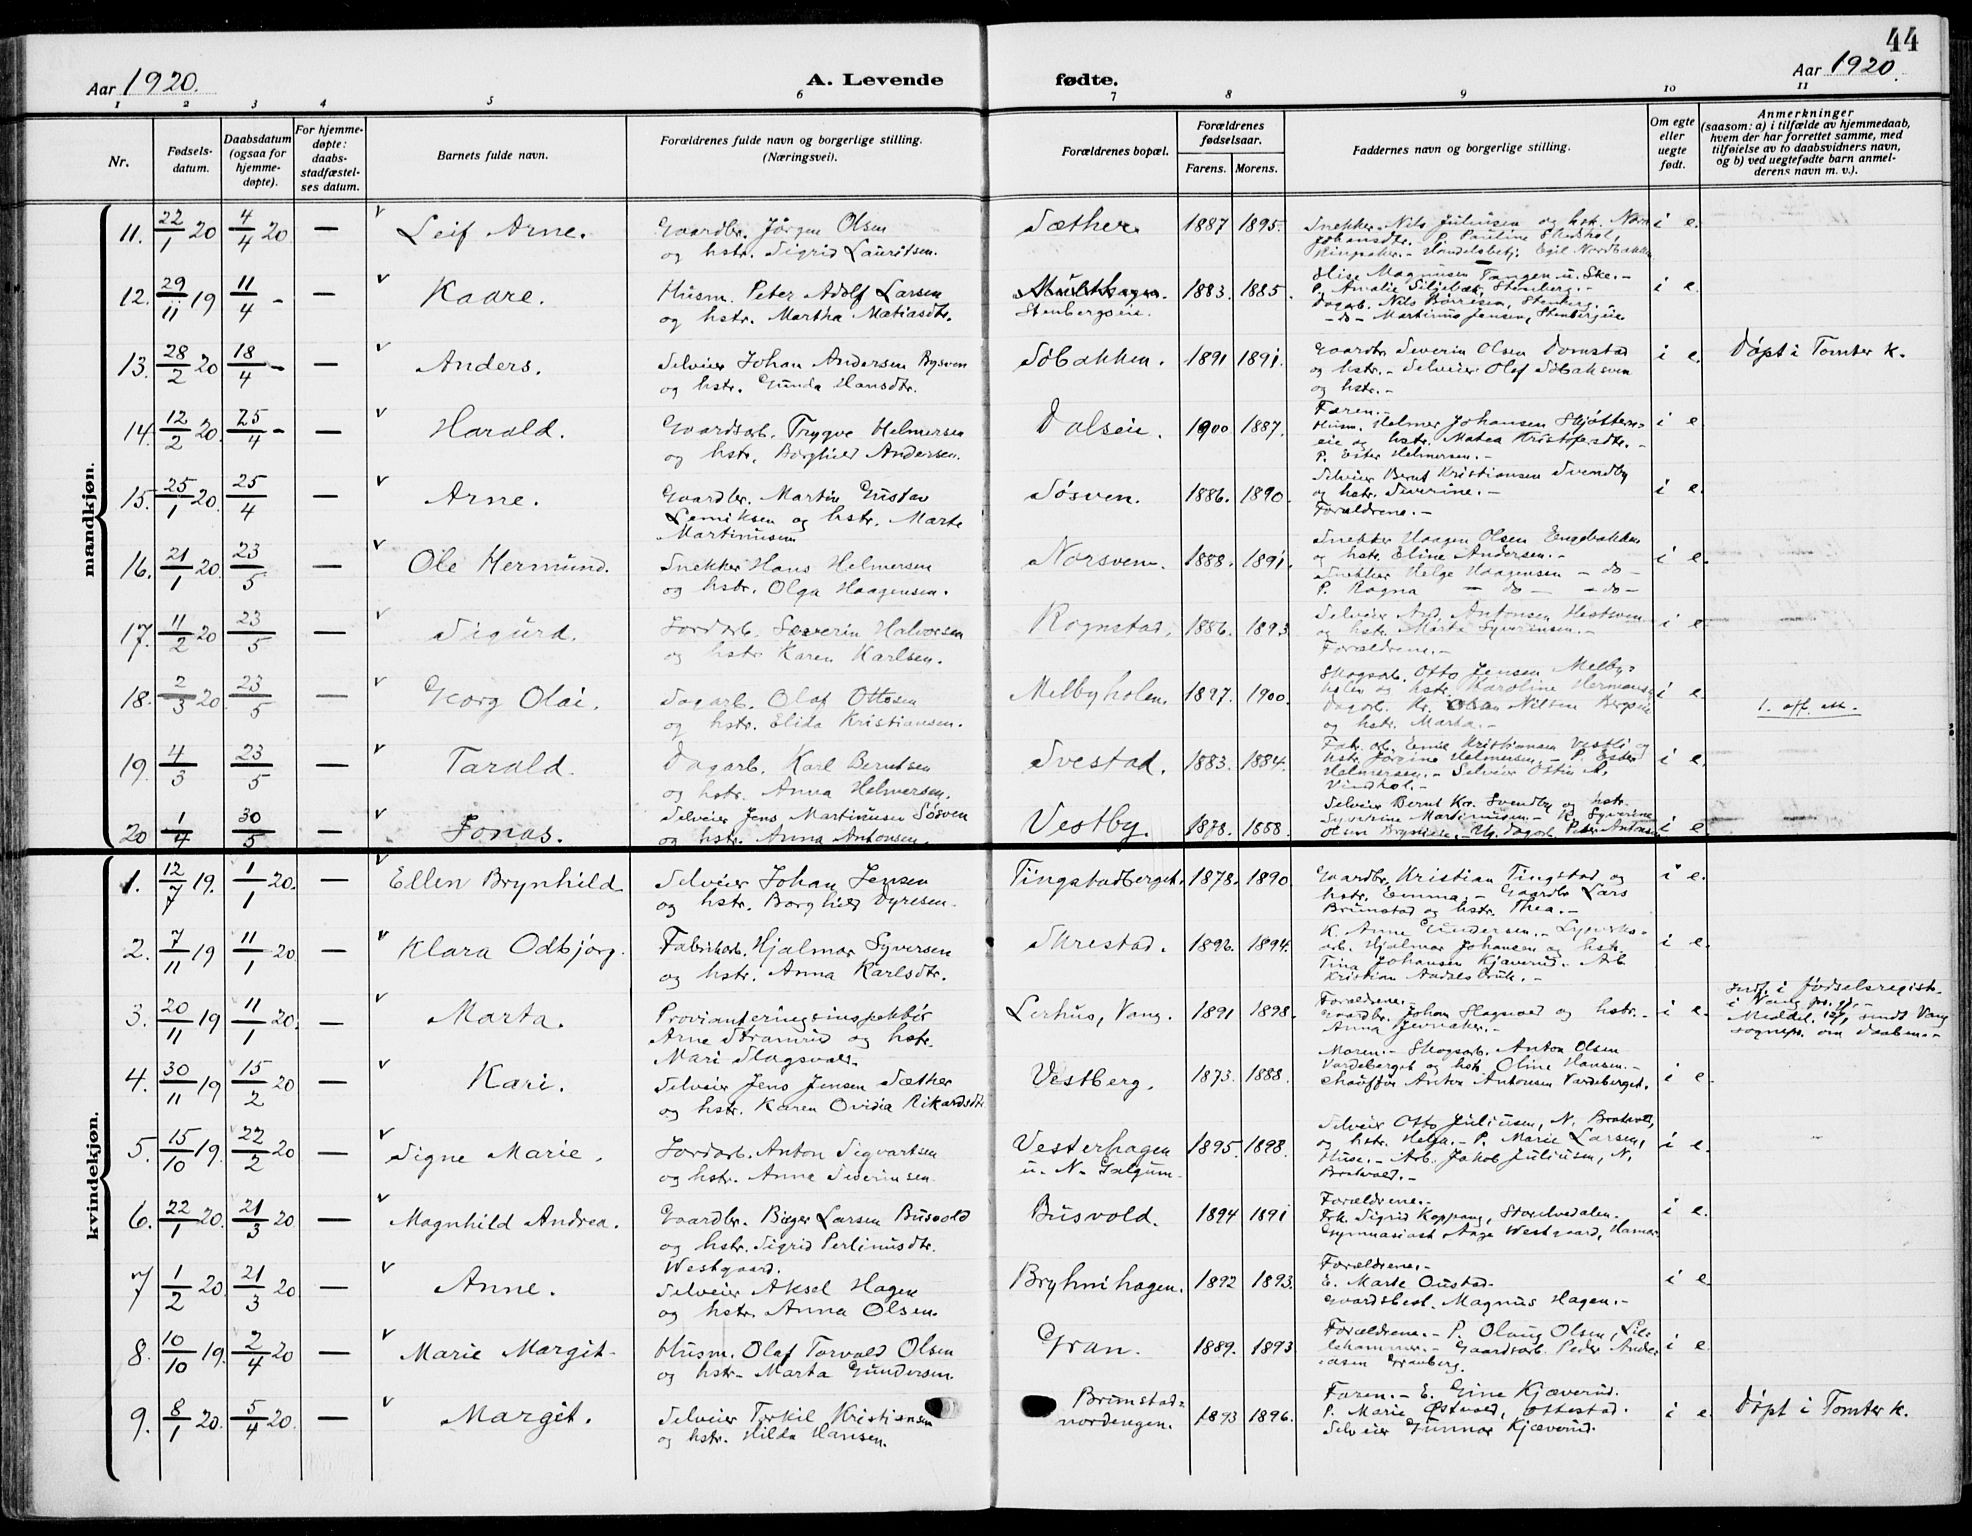 44
Aar 1920.
A. Levende fødte.
Aar 1920.
1 2 3 4 5 6 7 8 9 10 11
Nr.
Fødsels-
datum.
Daabsdatum
(ogsaa for
hjemme-
døpte).
For hjemme-
døpte:
daabs-
stadfæstel-
ses datum.
Barnets fulde navn.
Forældrenes fulde navn og borgerlige stilling.
(Næringsvei).
Forældrenes bopæl.
Forældrenes
fødselsaar.
Farens. Morens.
Faddernes navn og borgerlige stilling.
Om egte
eller
uegte
født.
Anmerkninger
(saasom: a) i tilfælde av hjemmedaab,
hvem der har forrettet samme, med
tilføielse av to daabsvidners navn,
og b) ved uegtefødte barn anmel-
derens navn m. v.).
mandkjøn.
11. 22/1 20 4/4 20 — Leif Arne.
Gaardbr. Jørgen Olsen
og hstr. Sigrid Lauritsen.
Sæther. 1887 1895.
Snekker Nils Juliussen og hst. 
Johansdtr. P. Pauline
Ringsaker. - Handelsbetj. Egil Nordbakken
i e.
12. 29/11 19 11/4 - — Kaare.
Husm. Peter Adolf Larsen
og hstr. Martha Matiasdtr.
Stenbergseie. 1883. 1885.
Elise Magnussen Tangen u. Ske. -
P. Amalie Siljebæk, Stenberg. -
Dagarb. Nils Børresen, Stenberg. -
- do - Martinus Jensen, Stenbergseie
i e.
13. 28/2 20 18/4 - — Anders.
Selveier Johan Andersen Bysven
og hstr. Gunda Hansdtr.
Søbakken. 1891 1891.
Gaardbr Severin Olsen Domstad
og hstr. - Selveier Olof Søbaksven
og hstr. -
i e.
Døpt i Tomter K.
14. 12/2 20. 25/4 - — Harald.
Gaardsarb. Trygve Helmersen
og hstr. Borghild Andersen.
Dalseie. 1900 1887.
Faren. -
Husm. Helmer Johansen Skjøtteren-
eie og hstr. Matea Kristofersdtr. -
P. Ester Helmersen. -
i e
15. 25/1 20. 25/4 — Arne.
Gaardbr. Martin Gustav
Lemiksen og hstr. Marte
Martinusen
Søsven. 1886. 1890.
Selveier Bernt Kristiansen Svendby
og hstr. Severine. -
Forældrene. -
i e.
16. 21/1 20. 23/5 — Ole Hermund.
Snekker Hans Helmersen
og hstr. Olga Haagensen.
Norsven. 1888. 1891.
Snekker Haagen Olsen Engebakken
og hstr. Eline Andersen. -
Snekker Helge Haagensen - do -
P. Ragna - do - - do -
i e.
17. 11/2 20 23/5 — Sigurd.
Jordarb. Severin Halvorsen
og hstr Karen Karlsen.
Rognstad. 1886. 1893.
Selveier Antonsen Hestsven
og hstr. Marta Syverinsen. -
Forældrene. -
i e.
18. 2/3 20 23/5 — Georg Olai.
Dagarb. Olaf Ottosen
og hstr. Elida Kristiansen.
Melbyholen. 1897. 1900.
Skogsarb. Otto Jensen Melby-
holen og hstr. Karoline Hermansen
Dagarb. Kr. Olsen Nilsen Bergseie
og hstr. Marta. -
i e.
1. off. att.
19. 4/3 23/5 — Tarald.
Dagarb. Karl Berntsen
og hstr. Anna Helmersen.
Svestad. 1883. 1884.
Fab. arb. Emil Kristiansen Vestli og
hstr. Jørgine Helmersen. - P. Ester
Helmersen. - Selveier Ottin A.
Vindhol. -
i e.
20 1/4 30/5 — Jonas.
Selveier Jens Martinusen Søsven
og hstr. Anna Antonsen.
Vestby. 1878. 1888.
Selveier Bernt Kr. Svendby og hstr.
Syverine Martinusen. - K. Syverine
Olsen - Ug. dagarb. Peder Antonsen
i e
kvindekjøn.
1. 12/7 19. 1/1 20. — Ellen Brynhild
Selveier Johan Jensen
og hstr. Borghild Dyresen.
Tingstadberget. 1878. 1890.
Gaardbr. Kristian Tingstad og
hstr. Emma. - Gaardbr Lars
Brumstad og hstr. Thea. -
i e.
2. 7/11 19 11/1 20. — Klara Odbjørg.
Fabrikarb. Hjalmar Syversen
og hstr. Anna Karlsdtr.
Skrestad. 1896. 1894.
K. Anne Gundersen. -
arb. Hjalmar Johansen og hstr.
Tina Johansen Kjæverud. - Arb.
Kristian Andelsbruk. -
i e.
3. 20/11 19 11/1 20. — Marta.
Provianteringsinspektør
Arne Stramrud og hstr.
Mari Slagsvold.
Lerhus, Vang. 1891 1898.
Forældrene. -
Gaardbr. Johan Slagsvold og hstr. -
Anna Jevnaker. -
i e.
Indf. i fødselsregist.
i Vang
Meddel. sendt Vang
sognepr. om daaben. -
4. 30/11 19 15/2 20 — Kari.
Selveier Jens Jensen Sæther
og hstr. Karen Ovidia Rikardsdtr.
Vestberg. 1873. 1888.
Moren. - Skogsarb. Anton Olsen
Vardeberget og hstr. Oline Hansen. -
Chauffør Anton Antonsen Vardeberget.
i e.
5. 15/10 19. 22/2 20 — Signe Marie.
Jordarb. Anton Sigvartsen
og hstr. Anna Severinsen.
Vesterhagen
u. N. Galgum. 1895. 1898.
Selveier Otto Juliusen, N. Brakvold,
og hstr. Helga. - P. Marie Larsen,
Huse. - Arb. Jakob Juliusen, N.
Brakvold. -
i e.
6. 22/1 20. 21/3 20 — Magnhild Andrea.
Gaardbr. Birger Larsen Busvold
og hstr. Sigrid Perlinusdtr.
Westgaard.
Busvold. 1894 1891
Forældrene. -
Frk. Sigrid Koppang, Storelvedalen.
Gymnasiast Aage Westgaard, Hamar.
i e.
7 1/2 20. 21/3 20 — Anne.
Selveier Aksel Hagen
og hstr. Anna Olsen.
Bryhnihagen. 1892 1893.
Forældrene. -
E. Marte Oustad.
Gaardsbest. Magnus Hagen. -
i e.
8. 10/10 19. 2/4 20 — Marie Margit.
Husm. Olaf Torvald Olsen
og hstr. Marta Gundersen.
Gran. 1889. 1893
Forældrene. - P. Olaug Olsen, Lil-
lehammer. - Gaardsarb. Peder Andre-
asen Granberg.
i e.
9. 8/1 20. 5/4 20. — Margit.
Selveier Torkil Kristiansen
og hstr. Hilda Hansen.
Brumstad-
nordengen. 1893 1896.
Faren. - E. Gine Kjæverud.
P. Marie Østvold, Ottestad.
Selveier Gunnar Kjæverud.
i e.
Døpt i Tomter K.